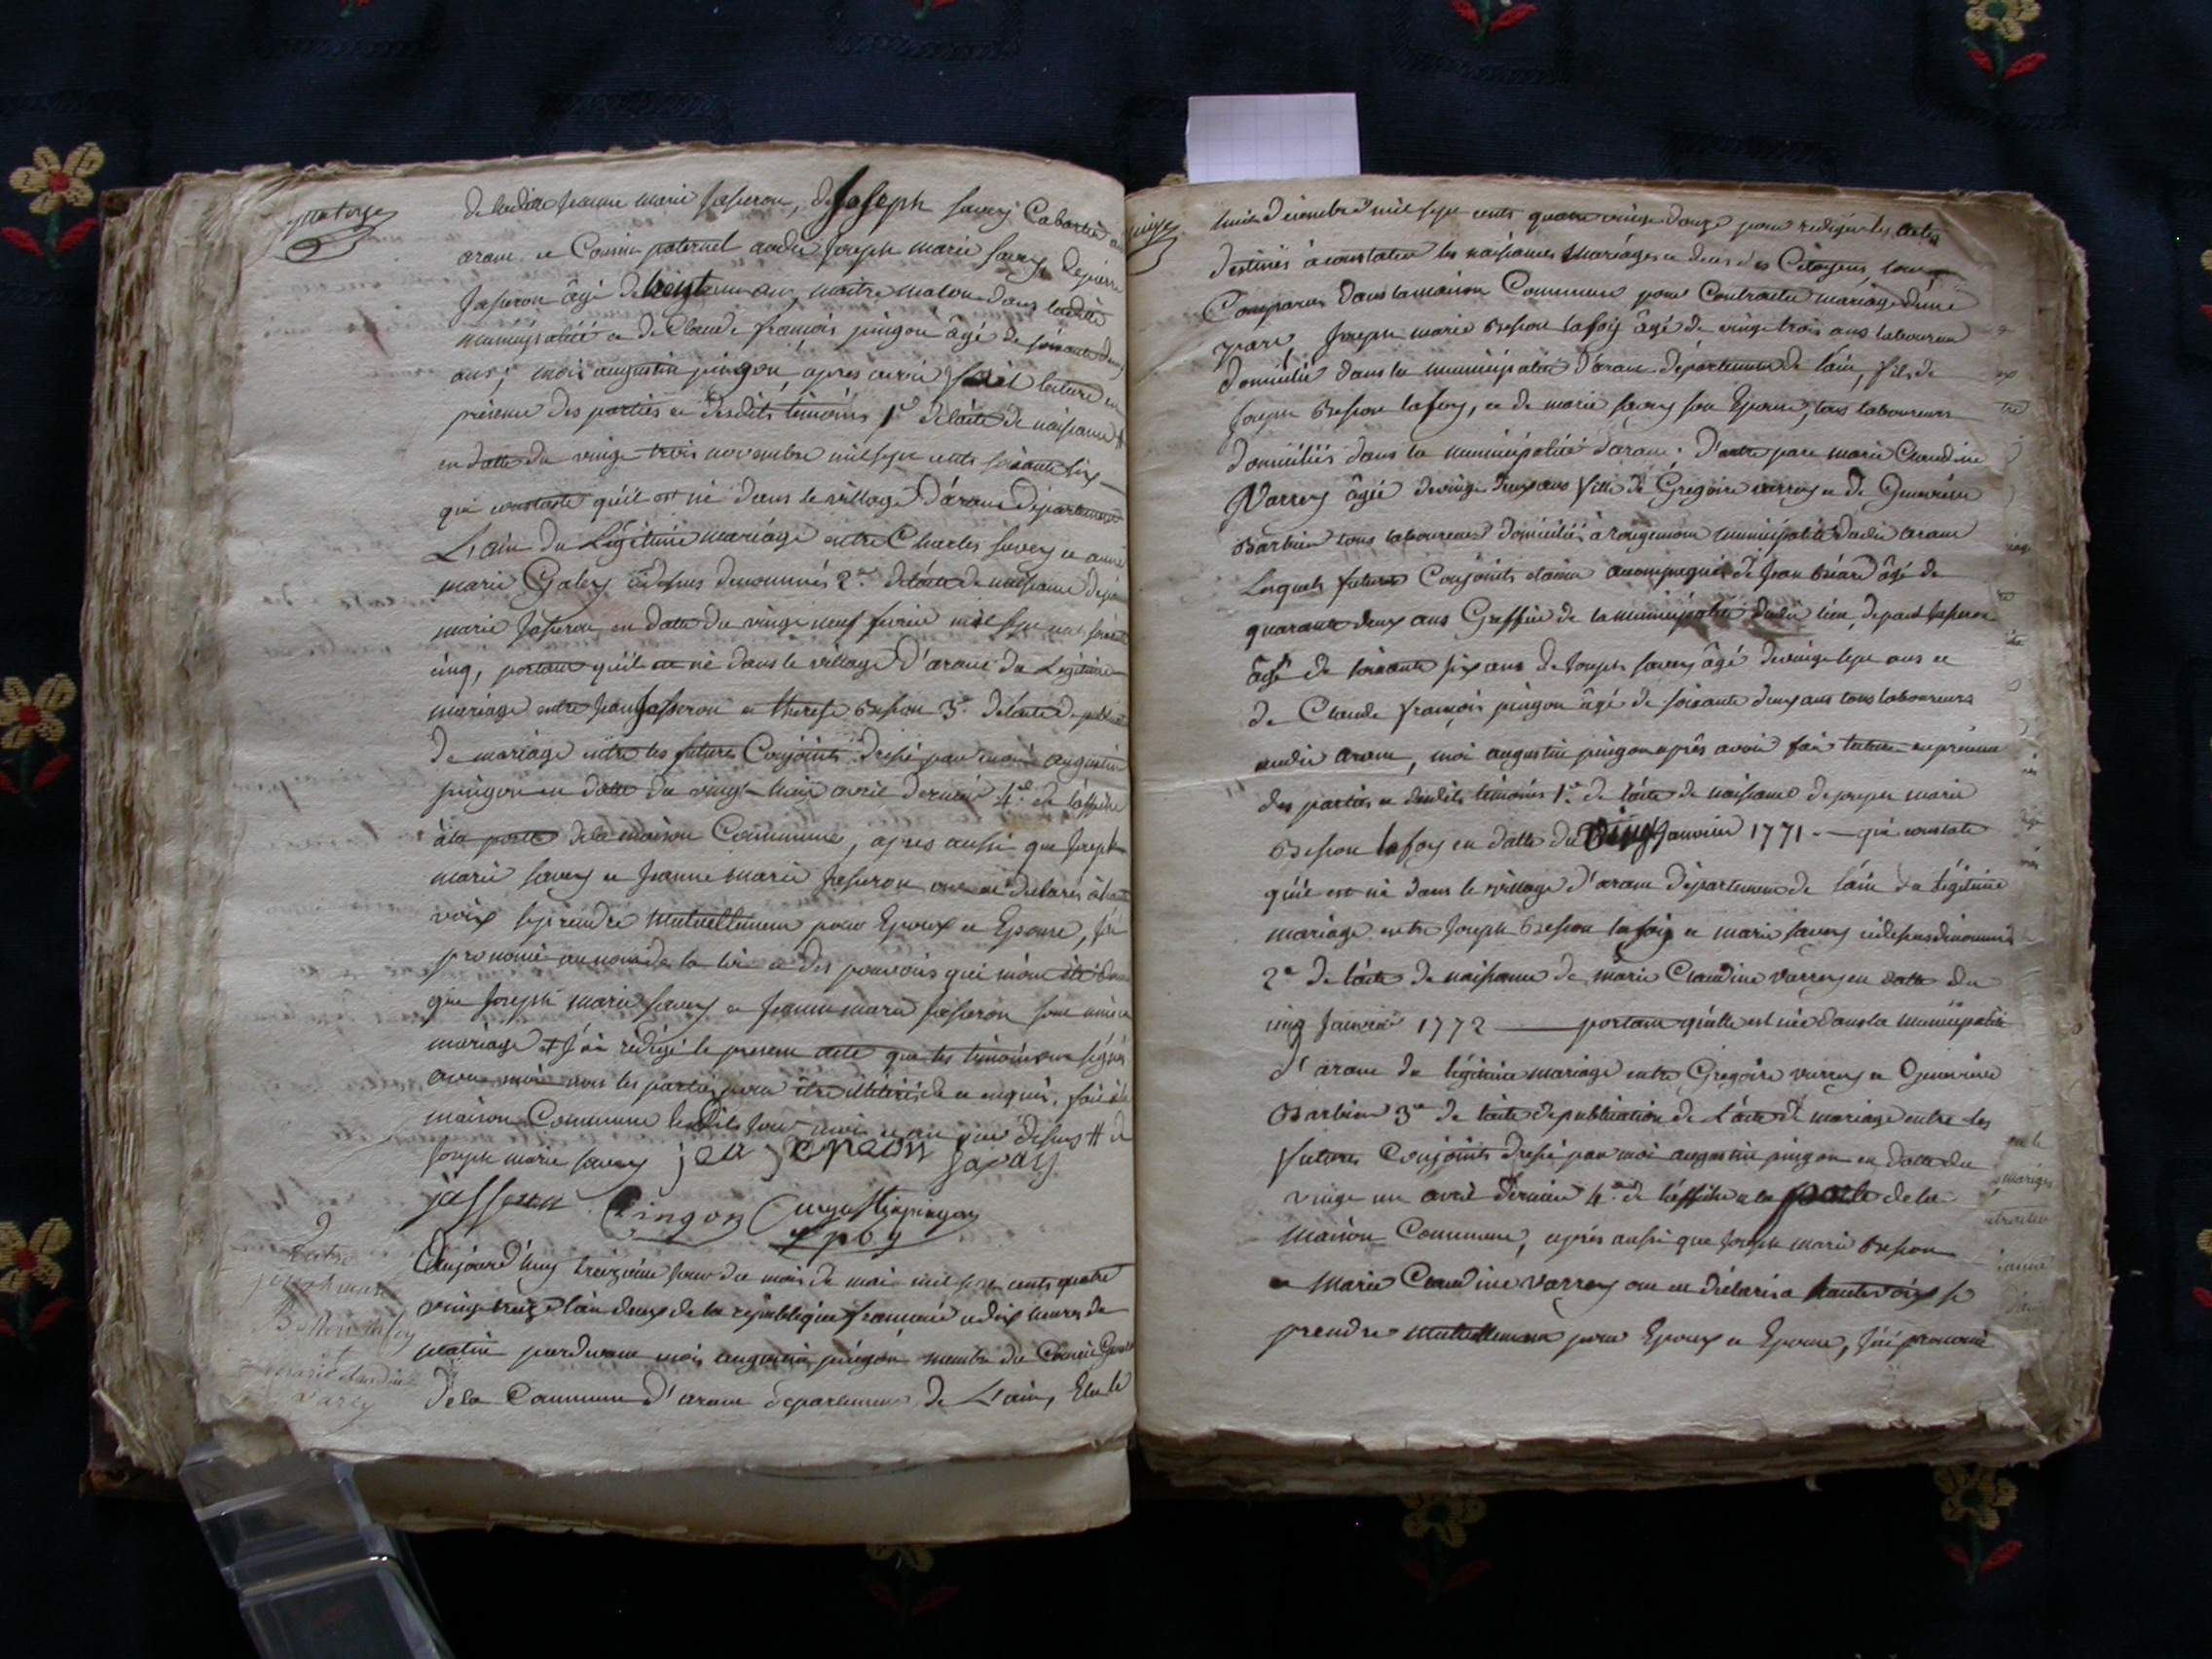 quatorze
de ladite jeanne marie jasseron, de joseph savey Cabartié
arane et Cousin paternel audit joseph marie savey de pierre
jasseron âgé de trente un ans, maitre maron dans ladite
municipalité et de Claude françois pingon âgé de soixante deux
ans; moi augustin pingon, apres avoir fait lecture en
présence des parties et desdits témoins 1° de l'acte de naissance #
en datte du vingt trois novembre mil sept cents soixante six
qui constate qu'il est né dans le village d'arane département
L'ain du Légitime mariage entre Charles savey et anne
marie Galley cidessus denommés 2° de l'acte de naissance de jeanne
marie jasseron en datte du vingt neuf fevrié mil sept cent soixante
cinq, portant qu'il est né dans le village d'arane du Légitime
mariage entre jean jasseron et therese Besson 3° de l'acte de publication
de mariage entre les futurs Conjoints dressé par moi augustin
pingon en datte du vingt huit avril dernié 4° de l'affiche
à la porte de la maison Commune, apres aussi que joseph
marie savey et jeanne marie jasseron ont eu déclarés à haute
voix se prendre mutuellement pour Epoux et Epouse, j'ai
prononcé au nom de la loi et des pouvoirs qui m'ont été
que joseph marie savey et jeanne marie jasseron sont unis en
mariage et j'ai rédigé le present acte que les témoins ont signés
avec moi non les parties pour être illitérés de ce enquis. fait à la
maison Commune lesdits jour mois et an que dessus # de
joseph marie savey jean jasseron savey
jasseron Pingon augustin pingon
opoy
Aujourd'huy treizieme jour du mois de mai mil sept cents quatre
vingt treize l'an deux de la république française a dix heures du
matin pardevant moi augustin pingon membre du Conseil General
de la Commune d'arane departement de L'ain, Elu le
entre
joseph marie
Besson lafoy
et
marie claudine
varey
quinze
huit Décembre mil sept cents quatre vingt douze pour rediger les actes
destinés à constater les naissances Mariages et deces des Citoyens, sont
Comparus dans la maison Commune pour Contracter mariage d'une
part, joseph marie Besson lafoy âgé de vingt trois ans laboureur
domicilié dans la municipalité d'arane département de l'ain, fils de
joseph Besson lafoy, et de marie savey son Epouse, tous laboureurs
domiciliés dans la municipalité d'arane; d'autre part marie Claudine
Varrey âgée de vingt deux ans fille de Gregoire varrey et de Genevieve
Barbier tous laboureurs domiciliés à rougemont municipalité dudit arane
Lesquels futurs Conjoints etaint accompagnés de jean Béard âgé de
quarante deux ans Greffier de la municipalité dudit lieu, de paul jasseron
âgé de soixante six ans de joseph savey âgé de vingt sept ans et
de Claude françois pingon âgé de soixante deux ans tous laboureurs
audit arane, moi augustin pingon après avoir fait lecture en présence
des parties et desdits témoins 1° de l'acte de naissance de joseph marie
Besson lafoy en datte du janvier 1771 — qui constate
qu'il est né dans le village d'arane département de l'ain du légitime
mariage entre joseph Besson lafoy et marie savey cidessus dénommés
2° de l'acte de naissance de marie Claudine varrey en datte du
cinq janvier 1772 — portant qu'elle est née dans la municipalité
d'arane du légitime mariage entre Gregoire varrey et Genevieve
Barbier 3° de l'acte de publication de L'acte de mariage entre les
futurs Conjoints dressé par moi augustin pingon en datte du
vingt un avril dernier 4° de l'affiche a la porte de la
Maison Commune, après aussi que joseph marie Besson
et Marie Claudine varrey ont eu déclarés a hautes voix se
prendre mutuellement pour Epoux et Epouse, j'ai prononcé